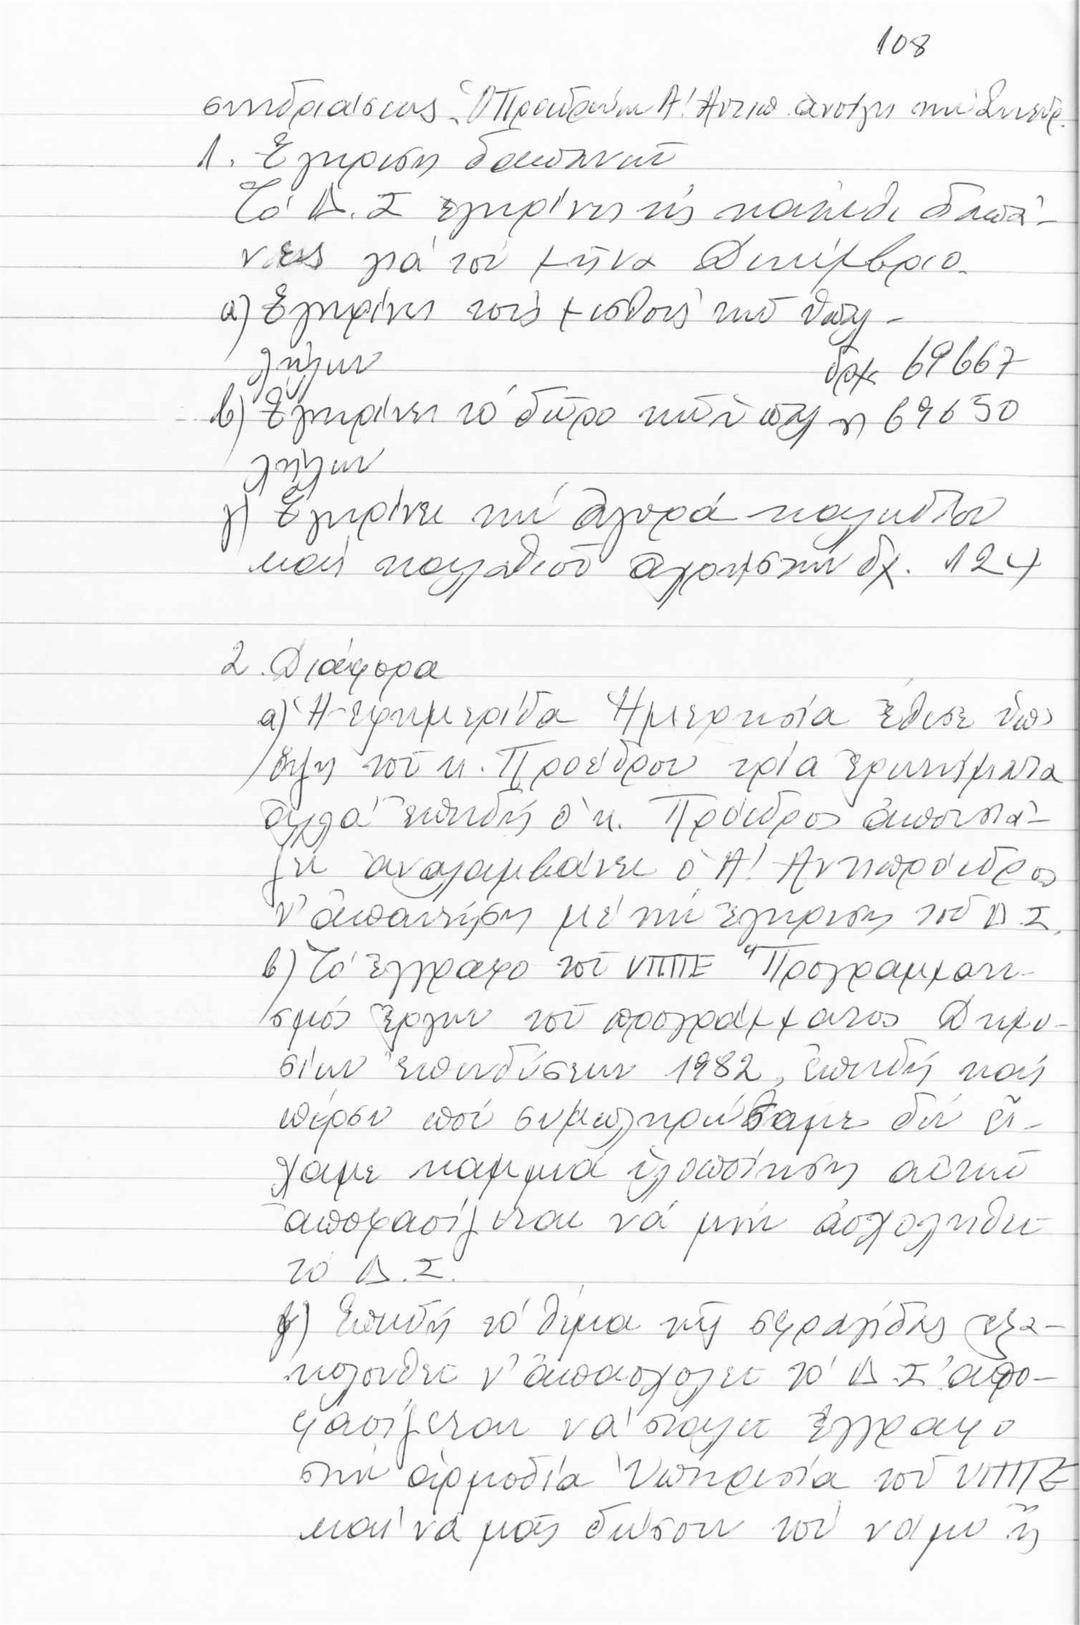 108
συνεδριάσεως. Ὁ Προεδρεύων Α! Ἀντιπ. ἀνοίγει τήν Συνεδρ.
1. Ἔγκριση δαπανῶν
Τό Δ.Σ ἐγκρίνει τίς κάτωθι δαπά-
νες γιά τόν μῆνα Δεκέμβριο.
α) Ἐγκρίνει τούς μισθούς τῶν ὑπαλ-
λήλων δρχ 69667
β) Ἐγκρίνει τό δῶρο τῶν ὑπαλ " 69650
λήλων
γ) Ἐγκρίνει τήν ἀγορά
καί καλαθιοῦ ἀχρήστων δχ. 124
2. Διάφορα
α) Ἡ ἐφημερίδα Ἡμερησία ἔθεσε ὑπ'
ὄψη τοῦ κ. Προέδρου τρία ἐρωτήματα
ἀλλά ἐπειδή ὁ κ. Πρόεδρος ἀπουσιά-
ζει ἀναλαμβάνει ὁ Α! Ἀντιπρόεδρος
ν' ἀπαντήσει μέ τήν ἔγκριση τοῦ Δ.Σ.
β) Τό ἔγγραφο τοῦ ΥΠΠΕ "Προγραμματι-
σμός ἔργων τοῦ προγράμματος Δημο-
σίων ἐπενδύσεων 1982, ἐπειδή καί
πέρσυ πού συμπληρώσαμε δέν εἴ-
χαμε καμμιά ὑλοποίηση αὐτῶν
ἀποφασίζεται νά μήν ἀσχοληθεῖ
τό Δ.Σ.
γ) Ἐπειδή τό θέμα τῆς σφραγίδας ἐξα-
κολουθεῖ ν' ἀπασχολεῖ τό Δ.Σ ἀπο-
φασίζεται νά σταλεῖ ἔγγραφο
στήν ἁρμόδια Ὑπηρεσία τοῦ ΥΠΠΕ
καί νά μᾶς δώσουν τόν νόμο ἤ